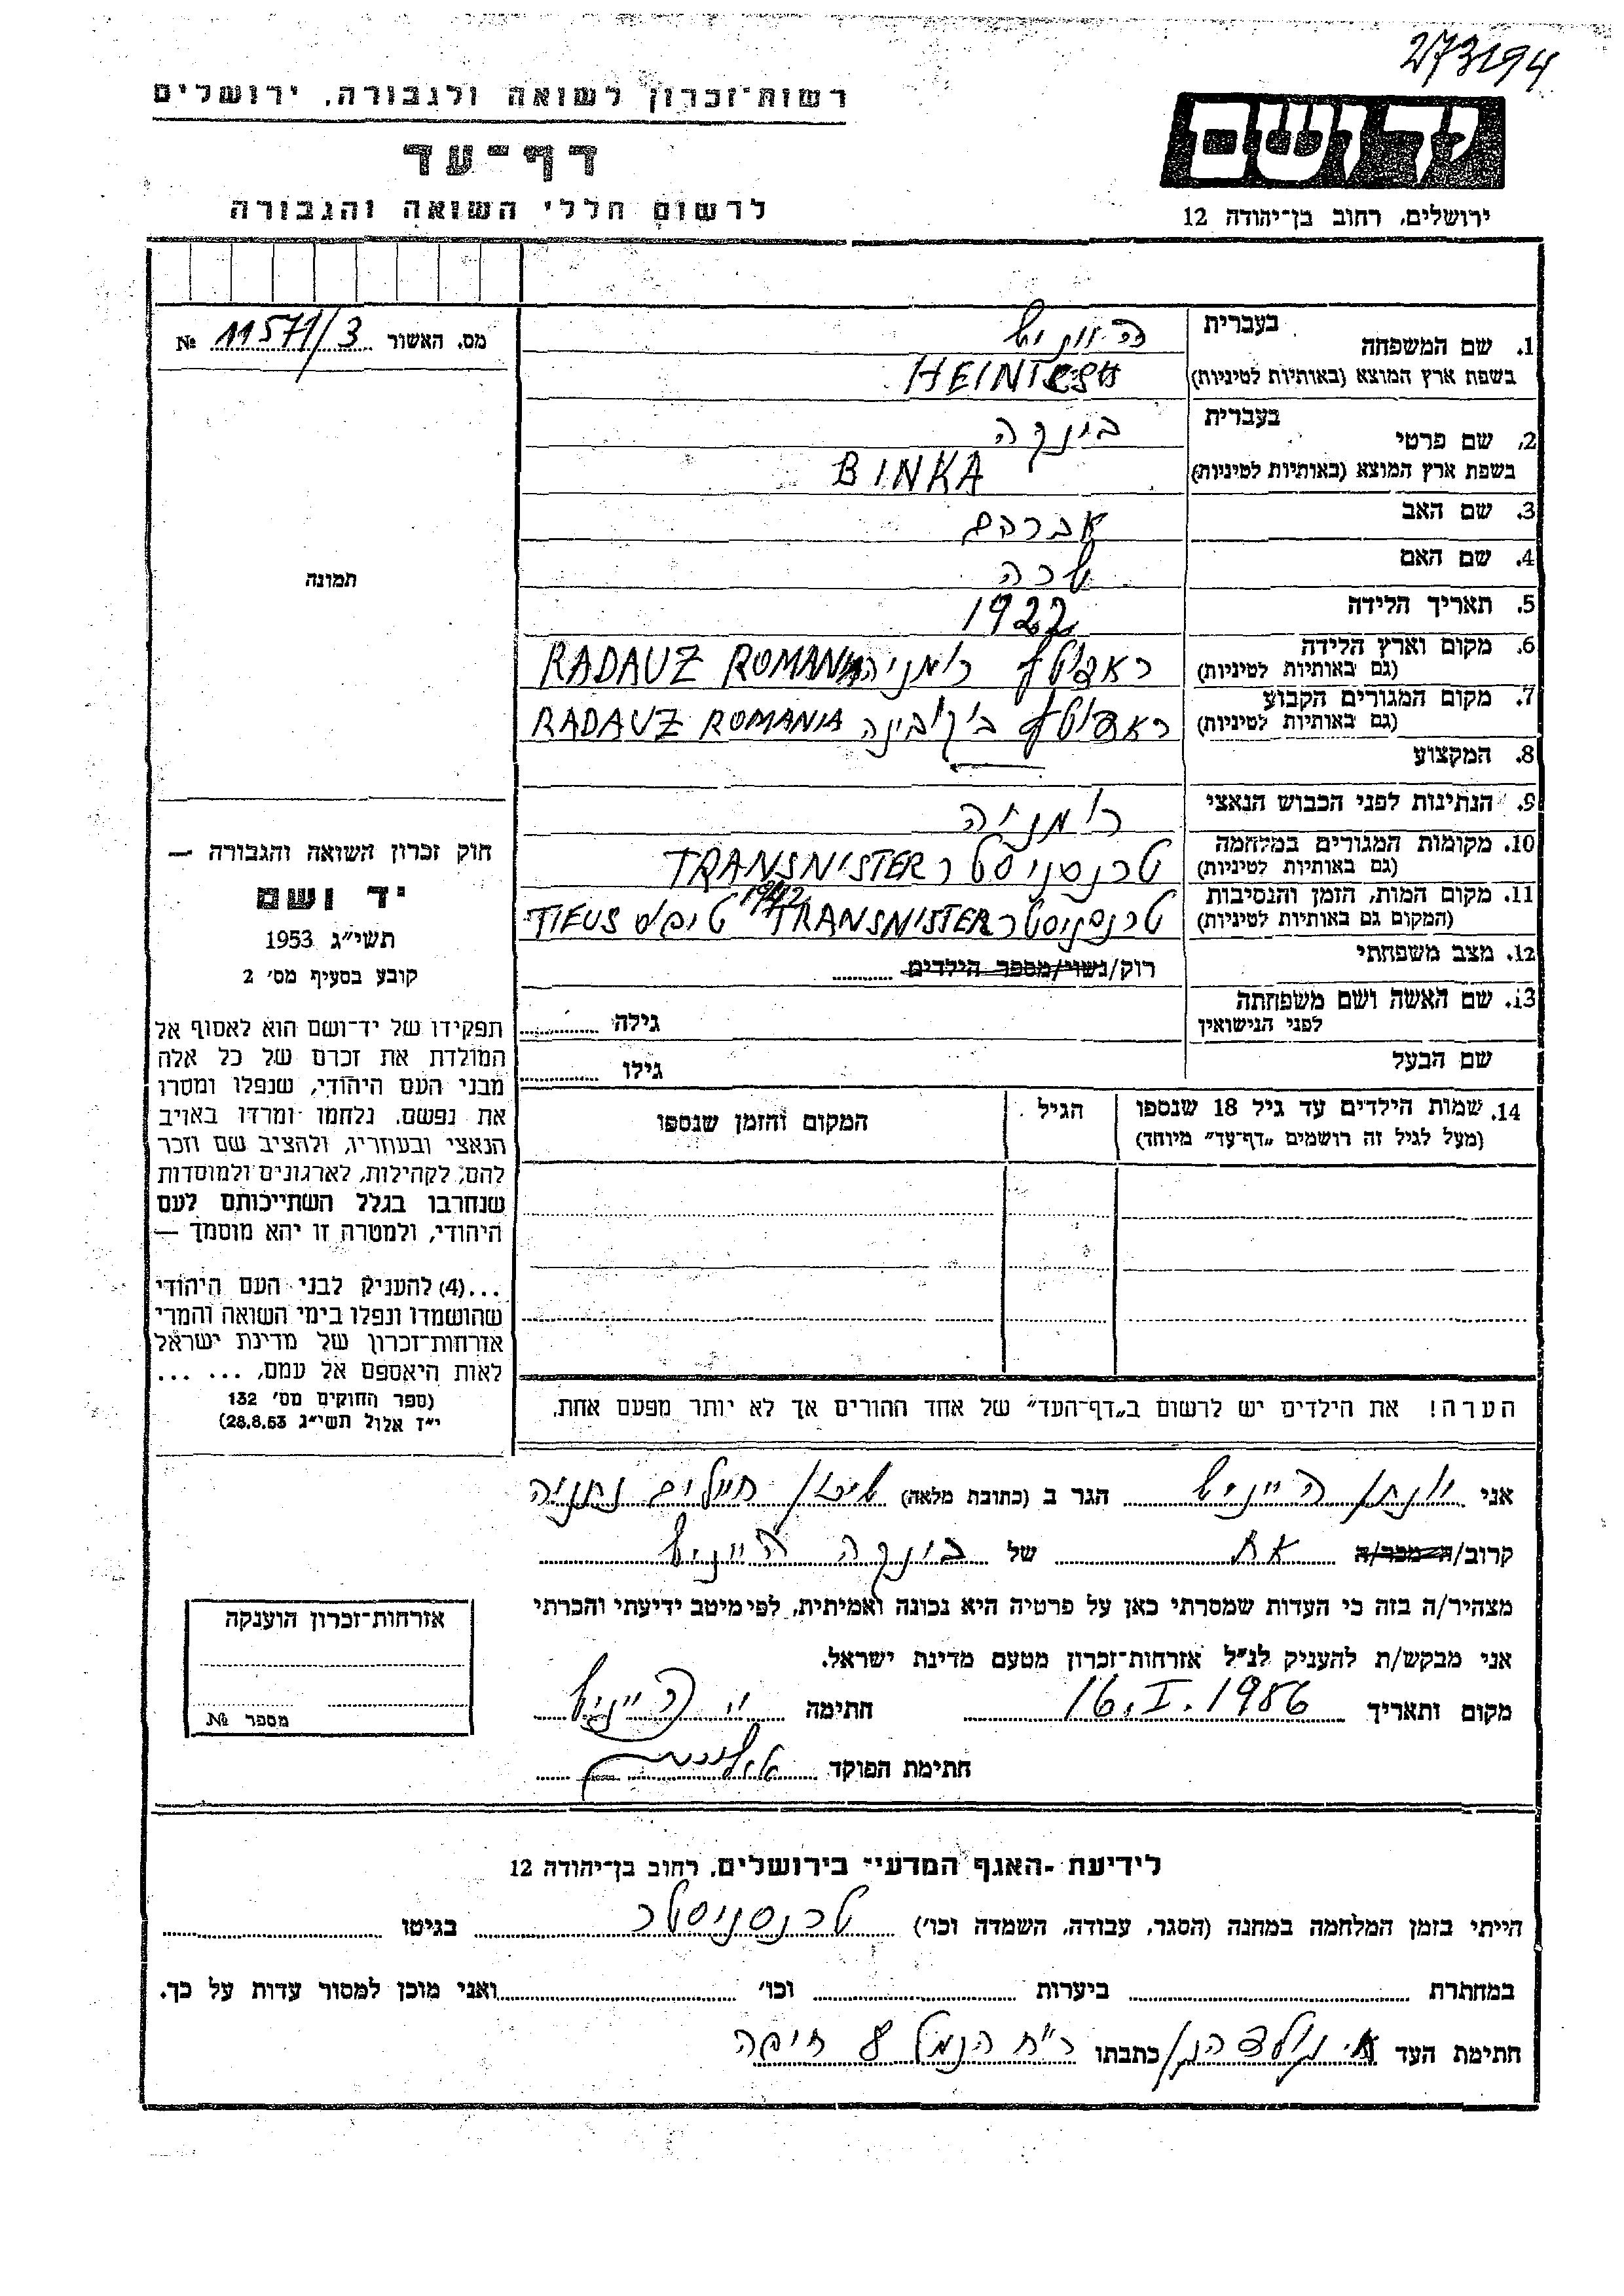 273194
רשות־זכרון לשואה ולגבורה, ירושלים
דף־עד
לרשום חללי השואה והגבורה
יד ושם
ירושלים, רחוב בן־יהודה 12
מס. האשור 11571/3 №
תמונה
חוק זכרון השואה והגבורה —
יד ושם
תשי״ג 1953
קובע בסעיף מס׳ 2
תפקידו של יד־ושם הוא לאסוף אל
המולדת את זכרם של כל אלה
מבני העם היהודי, שנפלו ומסרו
את נפשם, נלחמו ומרדו באויב
הנאצי ובעוזריו, ולהציב שם וזכר
להם, לקהילות, לארגונים ולמוסדות
שנחרבו בגלל השתייכותם לעם
היהודי, ולמטרה זו יהא מוסמך —
...(4) להעניק לבני העם היהודי
שהושמדו ונפלו בימי השואה והמרי
אזרחות־זכרון של מדינת ישראל
לאות היאספם אל עמם, ... ...
(ספר החוקים מס׳ 132
י״ז אלול תשי״ג 28.8.53)
1. שם המשפחה בעברית
בשפת ארץ המוצא (באותיות לטיניות)
2. שם פרטי בעברית בינקה
בשפת ארץ המוצא (באותיות לטיניות) BINKA
3. שם האב אברהם
4. שם האם שרה
5. תאריך הלידה 1922
6. מקום וארץ הלידה רומניה RADAUZ ROMANIA
(גם באותיות לטיניות)
7. מקום המגורים הקבוע בוקובינה RADAUZ ROMANIA
(גם באותיות לטיניות)
8. המקצוע
9. הנתינות לפני הכבוש הנאצי רומניה
10. מקומות המגורים במלחמה טרנסניסטר TRANSNISTER
(גם באותיות לטיניות)
11. מקום המות, הזמן והנסיבות טרנסניסטר TRANSNISTER 1942 טיפוס TIFUS
(המקום גם באותיות לטיניות)
12. מצב משפחתי רוק/נשוי/מספר הילדים
13. שם האשה ושם משפחתה גילה
לפני הנישואין
שם הבעל גילו
14. שמות הילדים עד גיל 18 שנספו הגיל המקום והזמן שנספו
(מעל לגיל זה רושמים „דף־עד״ מיוחד)
הערה! את הילדים יש לרשום ב„דף־העד״ של אחד ההורים אך לא יותר מפעם אחת.
אני יונתן הייניש הגר ב (כתובת מלאה) שיכון חיילים נתניה
קרוב/ה מכר/ה אח של בינקה הייניש
מצהיר/ה בזה כי העדות שמסרתי כאן על פרטיה היא נכונה ואמיתית, לפי מיטב ידיעתי והכרתי
אני מבקש/ת להעניק לנ״ל אזרחות־זכרון מטעם מדינת ישראל.
מקום ותאריך 16.I.1956 חתימה י הייניש
חתימת הפוקד
אזרחות־זכרון הוענקה
מספר №
לידיעת ־האגף המדעי־ בירושלים, רחוב בן־יהודה 12
הייתי בזמן המלחמה במחנה (הסגר, עבודה, השמדה וכו׳) טרנסניסטר בגיטו
במחתרת ביערות וכו׳ ואני מוכן למסור עדות על כך.
חתימת העד כתבתו רח הנמל 8 חיפה